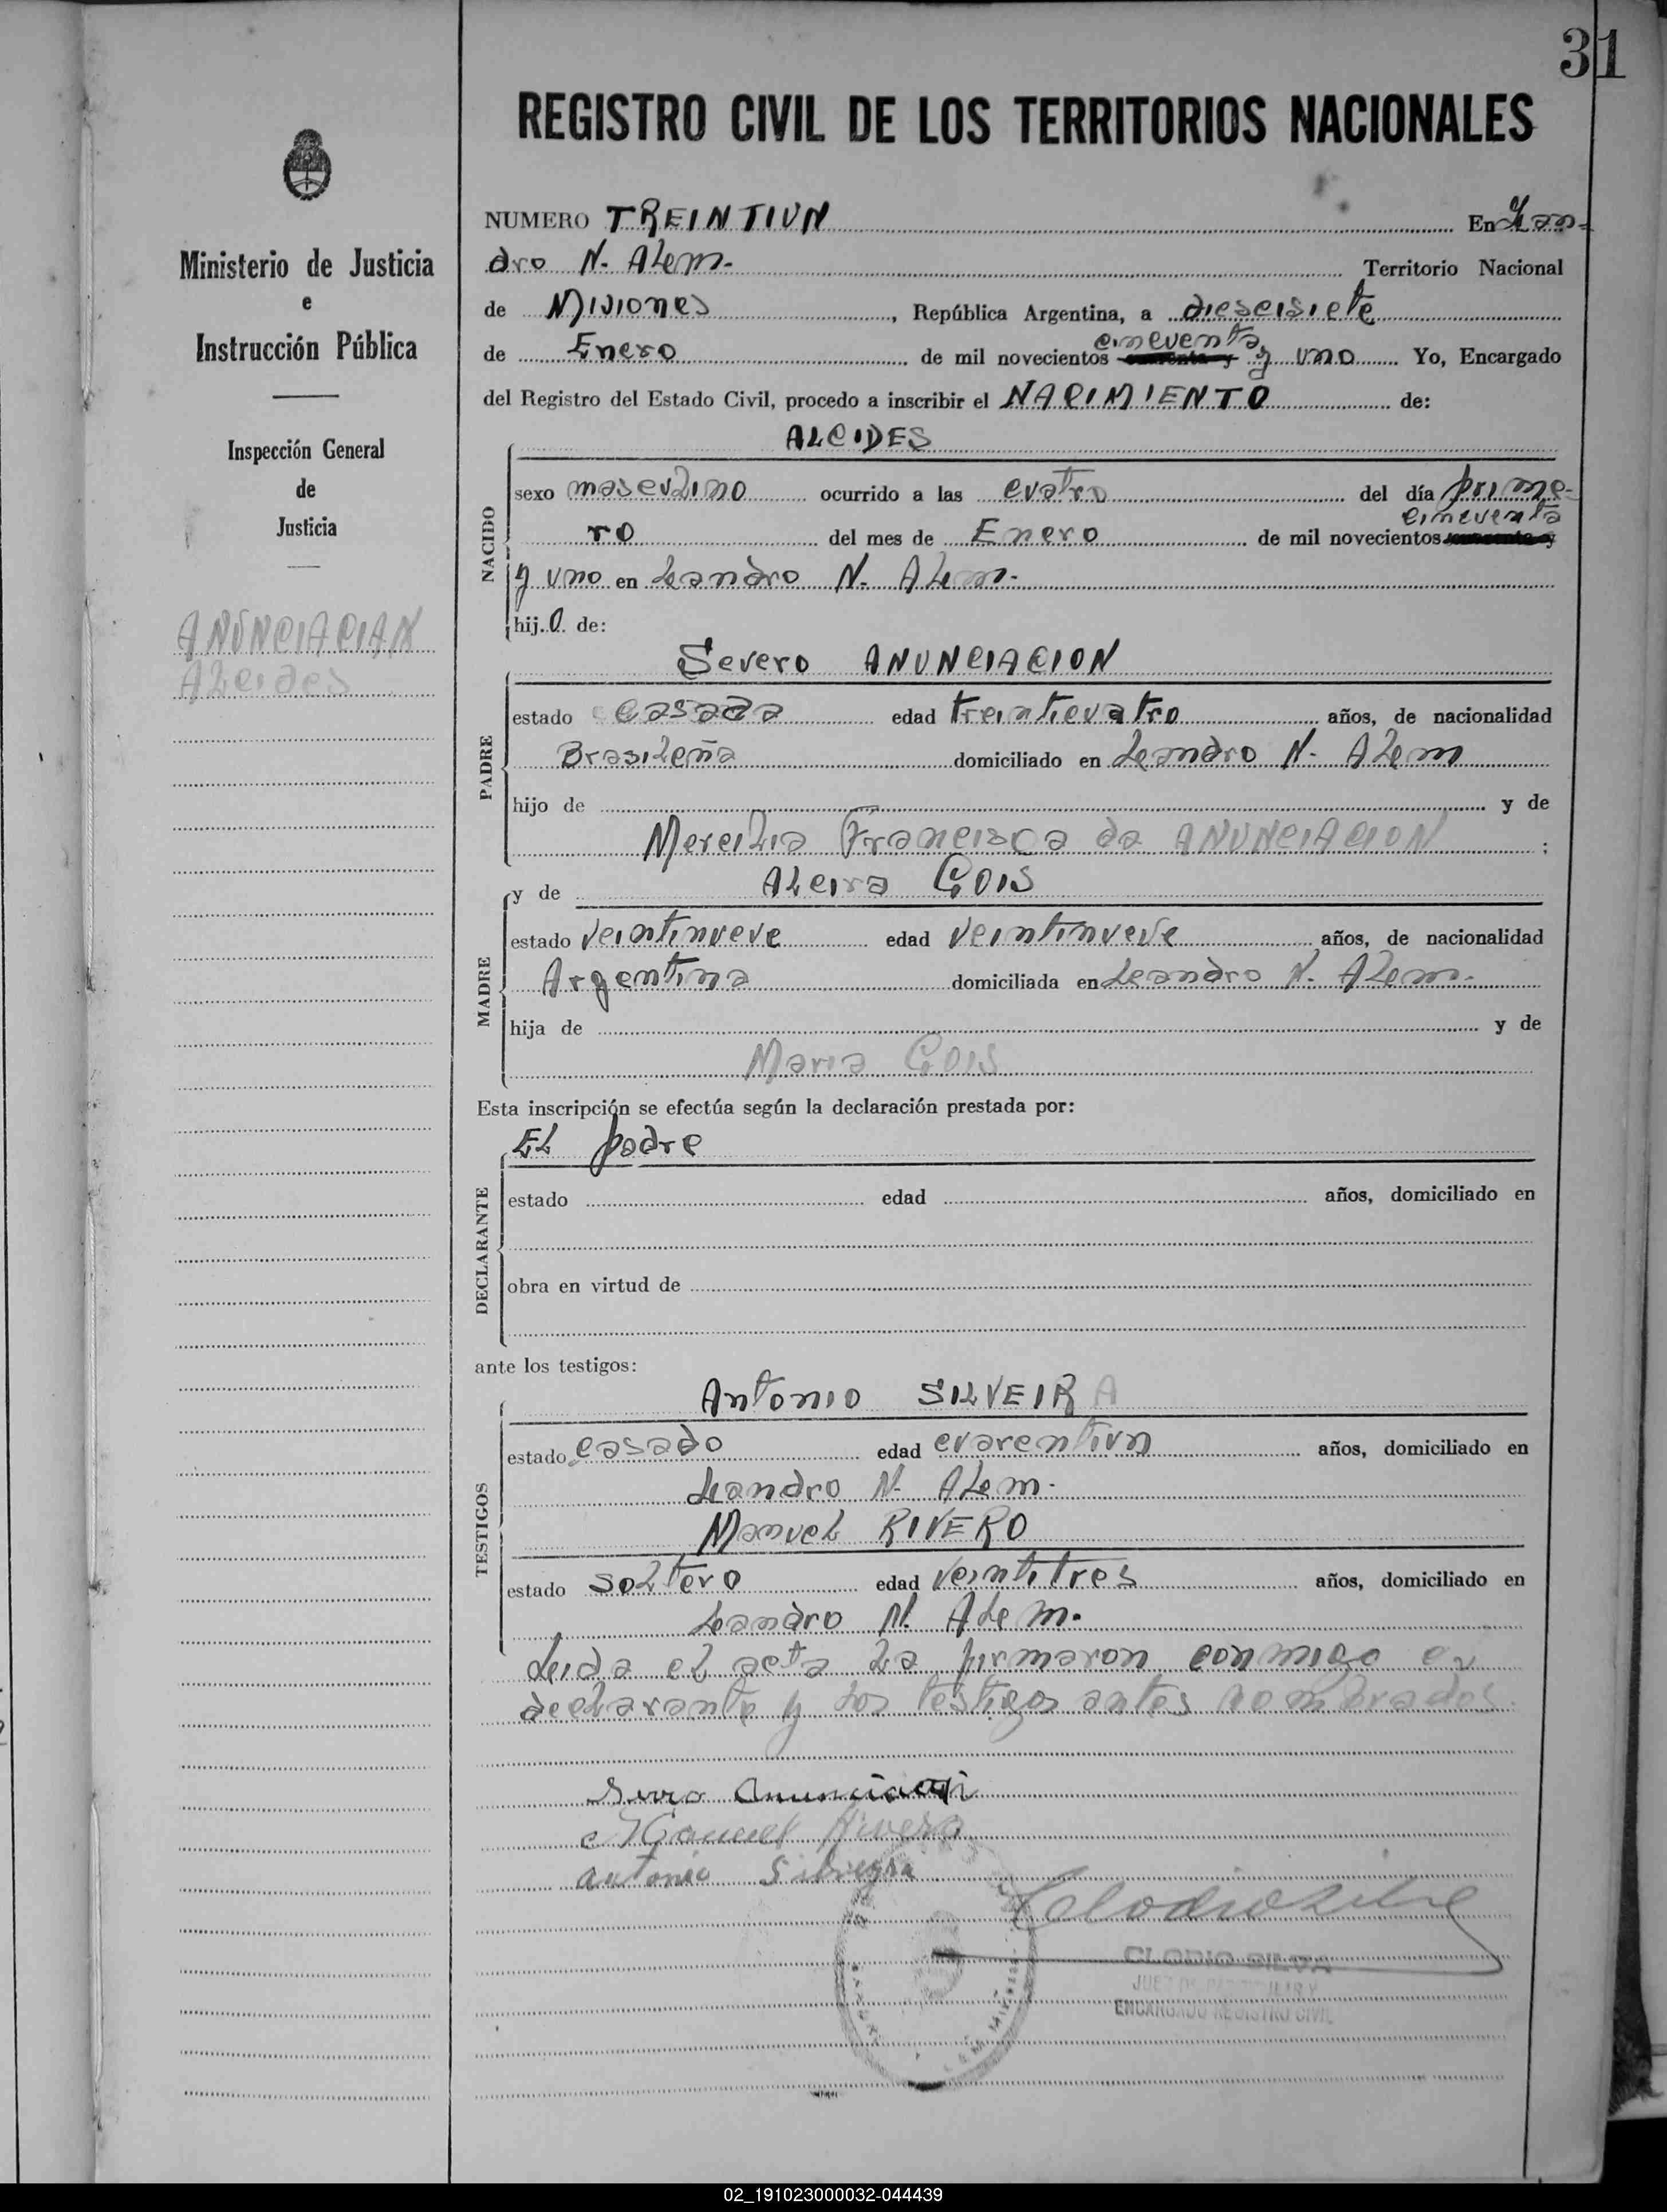 31
REGISTRO CIVIL DE LOS TERRITORIOS NACIONALES
Ministerio de Justicia
e
Instrucción Pública
Inspección General
de
Justicia
ANUNCIACIAN
ALcides
NUMERO TREINTIUN En Lean-
dro N. ALem. Territorio Nacional
de Misiones, República Argentina, a diescisiete
de Enero de mil novecientos cincuenta y uno Yo, Encargado
del Registro del Estado Civil, procedo a inscribir el NACIMIENTO de:
ALCIDES
NACIDO
sexo mascuLino ocurrido a las cuatro del día prime-
ro del mes de Enero de mil novecientos cincuenta
y uno en Leandro N. ALem.
hijo de:
Severo ANUNCIACION
PADRE
estado casada edad treinticuatro años, de nacionalidad
BrasiLeña domiciliado en Leandro N. ALem
hijo de y de
MerciLia Francisca da ANUNCIACION ;
MADRE
y de ALcira GOIS
estado veintinueve edad veintinueve años, de nacionalidad
Argentina domiciliada en Leandro N. ALem.
hija de y de
Maria GOIS
Esta inscripción se efectúa según la declaración prestada por:
EL padre
DECLARANTE
estado edad años, domiciliado en
obra en virtud de
ante los testigos:
Antonio SILVEIRA
TESTIGOS
estado casado edad cuarentiun años, domiciliado en
Leandro N. ALem.
ManueL RIVERO
estado soLtero edad veintitres años, domiciliado en
Leandro N. ALem.
Leida eL acta La firmaron conmigo eL
decLarante y Los testigos antes nombrados.
Manuel Rivero
Antonio
CLODIO SILVA
ENCARGADO REGISTRO CIVIL
02_191023000032-044439